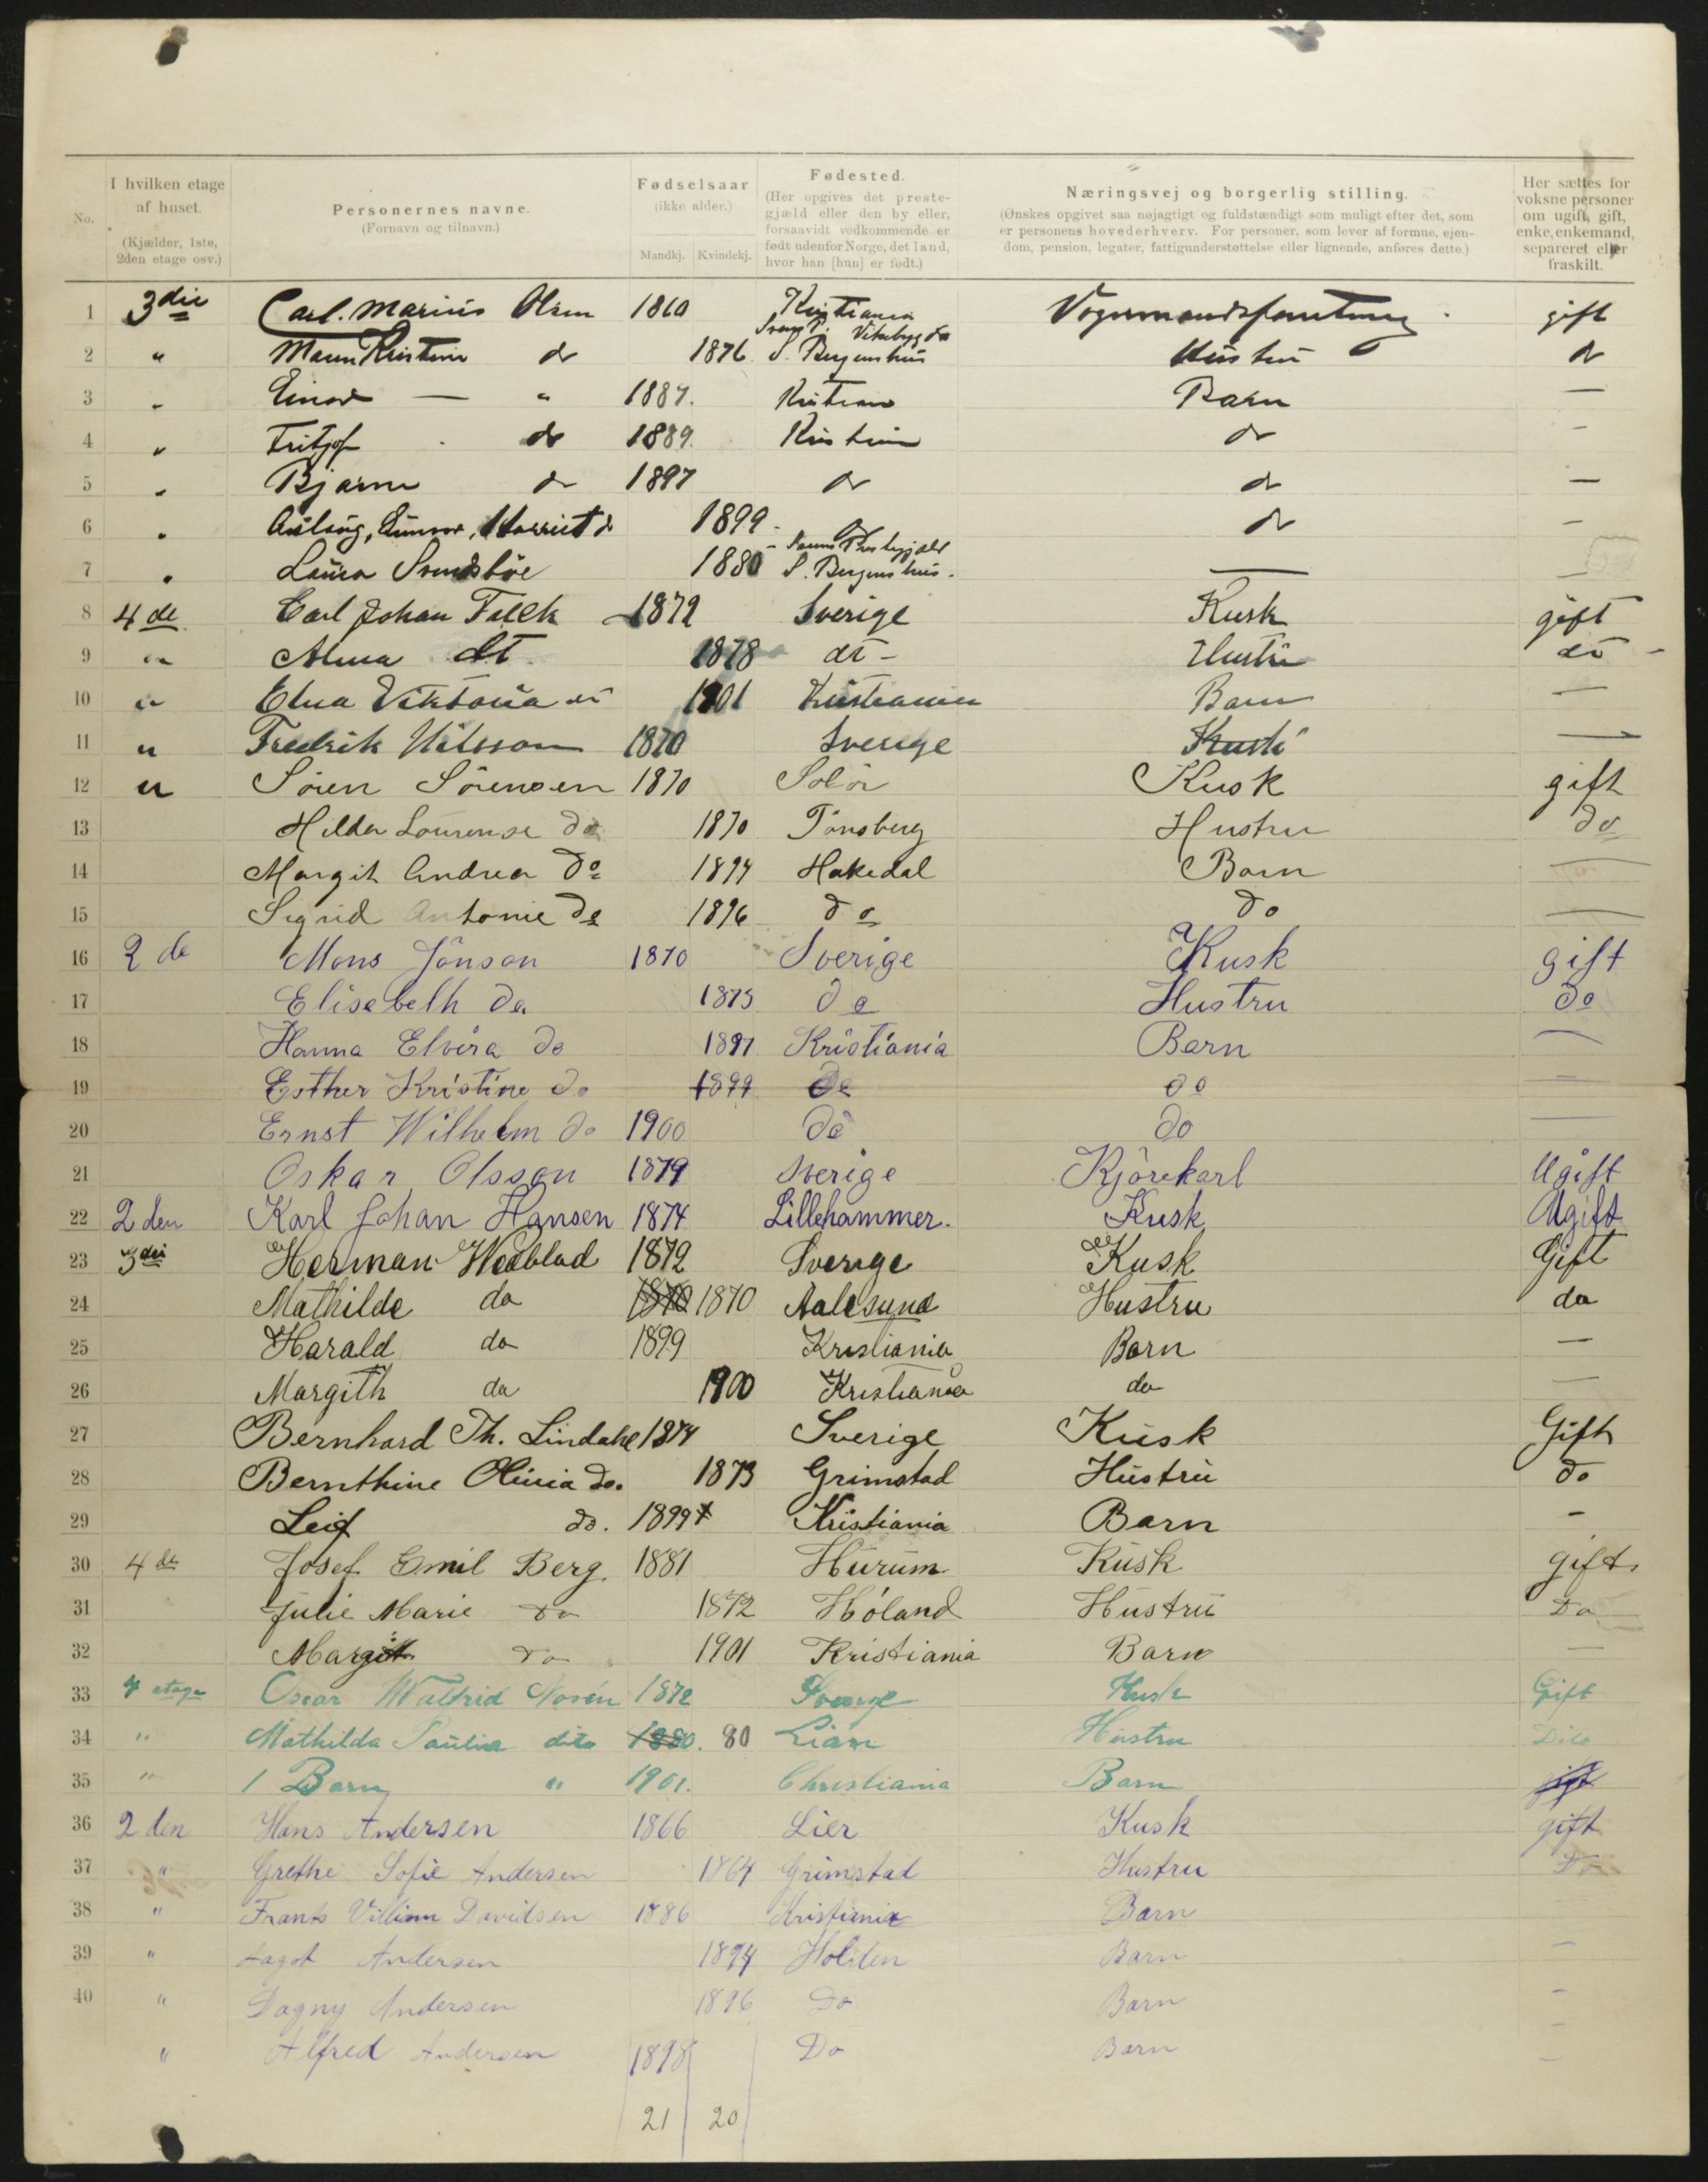 No.
I hvilken etage af huset. (Kjælder, 1ste, 2den etage osv.)
Personernes navne. (Fornavn og tilnavn.)
Fødselsaar (ikke alder.) Mandkj. Kvindekj.
Fødested. (Her opgives det prestegjæld eller den by eller, forsaavidt vedkommende er født udenfor Norge, det land, hvor han [hun] er født.)
Næringsvej og borgerlig stilling. (Ønskes opgivet saa nøjagtigt og fuldstændigt som muligt efter det, som er personens hovederhverv. For personer, som lever af formue, ejendom, pension, legater, fattigunderstøttelse eller lignende, anføres dette.)
Her sættes for voksne personer om ugift, gift, enke, enkemand, separeret eller fraskilt.
1 3die Carl. Marius Olsen 1860 Kristiania gift
2 " Kristine do 1876 S. Bergenhus Hustru do
3 " Einar — " 1887. Kristiania Barn —
4 " Fritjof do 1889. Kristiania do -
5 " Bjarne do 1897 do do —
6 " Harriet do 1899 do do -
7 " Laura 1880 S. Bergenhus. —
8 4de Carl Johan Falck 1872 Sverige Kusk gift
9 " Alma dt 1878 dt - Hustru dt -
10 " Elna Viktoria dt 1901 Kristiania Barn —
11 " Fredrik Nilsson 1870 Sverige —
12 " Sören Sörensen 1870 Solör Kusk gift
13 Hilda Lourense do 1870 Tönsberg Hustru do
14 Margit Andrea do 1894 Hakedal Barn —
15 Sigrid Antonie do 1896 do do —
16 2de Mons Jönson 1870 Sverige Kusk gift
17 Elisabeth do 1873 do Hustru do
18 Hanna Elvira do 1897 Kristiania Barn —
19 Esther Kristine do 1899 do do —
20 Ernst Wilhelm do 1900 do do —
21 Oskar Olsson 1879 Sverige Kjörekarl Ugift
22 2den Karl Johan Hansen 1874 Lillehammer. Kusk Ugift
23 3die Herman Wedblad 1872 Sverige Kusk Gift
24 Mathilde do 1870 1870 Aalesund Hustru do
25 Harald do 1899 Kristiania Barn —
26 Margith do 1900 Kristiania do —
27 Bernhard Th. Lindahl 1874 Sverige Kusk Gift
28 Bernthine Olivia do. 1873 Grimstad Hustru do
29 Leif do. 1899 Kristiania Barn -
30 4de Josef Emil Berg. 1881 Hurum Kusk gift
31 Julie Marie do 1872 Höland Hustru Do
32 Margit do 1901 Kristiania Barn —
33 4 etage Oscar Walfrid Norén 1872 Sverige Kusk Gift
34 " Mathilda Paulina dito 1880. 80 Lian Hustru Dito
35 " 1 Barn " 1901. Christiania Barn gift
36 2den Hans Andersen 1866 Lier Kusk gift
37 " Grethe Sofie Andersen 1864 Grimstad Hustru Do
38 " Frants Villiam Davidsen 1886 Kristiania Barn -
39 " Andersen 1894 Holden Barn -
40 " Dagny Andersen 1896 Do Barn -
" Alfred Andersen 1898 Do Barn -
21 20